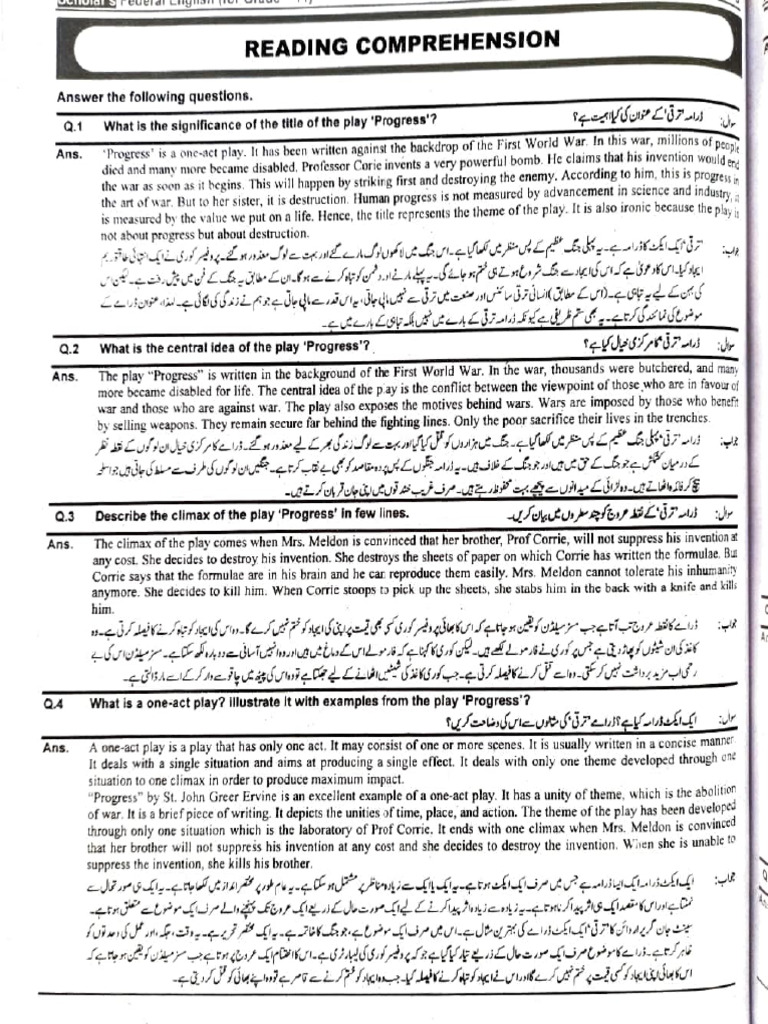 Scholar's Federal English (for Grade - 11)
READING COMPREHENSION
Answer the following questions.
Q.1 What is the significance of the title of the play 'Progress'? سوال: ڈرامہ 'ترقی' کے عنوان کی کیا اہمیت ہے؟
Ans. 'Progress' is a one-act play. It has been written against the backdrop of the First World War. In this war, millions of people
died and many more became disabled. Professor Corie invents a very powerful bomb. He claims that his invention would end
the war as soon as it begins. This will happen by striking first and destroying the enemy. According to him, this is progress in
the art of war. But to her sister, it is destruction. Human progress is not measured by advancement in science and industry,
is measured by the value we put on a life. Hence, the title represents the theme of the play. It is also ironic because the play is
not about progress but about destruction.
جواب: 'ترقی' ایک ایکٹ کا ڈرامہ ہے۔ یہ پہلی جنگ عظیم کے پس منظر میں لکھا گیا ہے۔ اس جنگ میں لاکھوں لوگ مارے گئے اور بہت سے لوگ معذور ہو گئے۔ پروفیسر کوری نے ایک انتہائی طاقتور بم
ایجاد کیا۔ اس کا دعویٰ ہے کہ اس کی ایجاد سے جنگ شروع ہوتے ہی ختم ہو جائے گی۔ یہ پہلے مارنے اور دشمن کو تباہ کرنے سے ہوگا۔ ان کے مطابق یہ جنگ کے فن میں پیش رفت ہے۔ لیکن اس
کی بہن کے لیے یہ تباہی ہے۔ (اس کے مطابق) انسانی ترقی سائنس اور صنعت میں ترقی سے نہیں ماپی جاتی، یہ اس قدر سے ماپی جاتی ہے جو ہم نے زندگی کی لگائی ہے۔ لہٰذا، عنوان ڈرامے کے
موضوع کی نمائندگی کرتا ہے۔ یہ بھی ستم ظریفی ہے کیونکہ ڈرامہ ترقی کے بارے میں نہیں بلکہ تباہی کے بارے میں ہے۔
Q.2 What is the central idea of the play 'Progress'? سوال: ڈرامہ 'ترقی' کا مرکزی خیال کیا ہے؟
Ans. The play "Progress" is written in the background of the First World War. In the war, thousands were butchered, and many
more became disabled for life. The central idea of the play is the conflict between the viewpoint of those who are in favour of
war and those who are against war. The play also exposes the motives behind wars. Wars are imposed by those who benefit
by selling weapons. They remain secure far behind the fighting lines. Only the poor sacrifice their lives in the trenches.
جواب: ڈرامہ 'ترقی' پہلی جنگ عظیم کے پس منظر میں لکھا گیا ہے۔ جنگ میں ہزاروں کو قتل کیا گیا اور بہت سے لوگ زندگی بھر کے لیے معذور ہو گئے۔ ڈرامے کا مرکزی خیال ان لوگوں کے نقطہ نظر
کے درمیان کشمکش ہے جو جنگ کے حق میں ہیں اور جو جنگ کے خلاف ہیں۔ یہ ڈرامہ جنگوں کے پس پردہ مقاصد کو بھی بے نقاب کرتا ہے۔ جنگیں ان لوگوں کی طرف سے مسلط کی جاتی ہیں جو اسلحہ
بیچ کر فائدہ اٹھاتے ہیں۔ وہ لڑائی کے میدانوں سے پیچھے بہت محفوظ رہتے ہیں۔ صرف غریب خندقوں میں اپنی جان قربان کرتے ہیں۔
Q.3 Describe the climax of the play 'Progress' in few lines. سوال: ڈرامہ 'ترقی' کے نقطہ عروج کو چند سطروں میں بیان کریں۔
Ans. The climax of the play comes when Mrs. Meldon is convinced that her brother, Prof Corrie, will not suppress his invention at
any cost. She decides to destroy his invention. She destroys the sheets of paper on which Corrie has written the formulae. But
Corrie says that the formulae are in his brain and he car reproduce them easily. Mrs. Meldon cannot tolerate his inhumanity
anymore. She decides to kill him. When Corrie stoops to pick up the sheets, she stabs him in the back with a knife and kills
him.
جواب: ڈرامے کا نقطہ عروج تب آتا ہے جب مسز میلڈن کو یقین ہو جاتا ہے کہ اس کا بھائی پروفیسر کوری کسی بھی قیمت پر اپنی ایجاد کو ختم نہیں کرے گا۔ وہ اس کی ایجاد کو تباہ کرنے کا فیصلہ کرتی ہے۔ وہ
کاغذ کی ان شیٹوں کو پھاڑ دیتی ہے جس پر کوری نے فارمولے لکھے ہیں۔ لیکن کوری کا کہنا ہے کہ فارمولے اس کے دماغ میں ہیں اور وہ انہیں آسانی سے دوبارہ لکھ سکتا ہے۔ مسز میلڈن اس کی بے
رحمی اب مزید برداشت نہیں کر سکتی۔ وہ اسے قتل کرنے کا فیصلہ کرتی ہے۔ جب کوری کاغذ کی شیٹیں اٹھانے کے لیے جھکتا ہے تو وہ اس کی پیٹھ میں چاقو سے وار کر کے اسے مار ڈالتی ہے۔
Q.4 What is a one-act play? illustrate it with examples from the play 'Progress'?
سوال: ایک ایکٹ ڈرامہ کیا ہے؟ ڈرامے 'ترقی' کی مثالوں سے اس کی وضاحت کریں؟
Ans. A one-act play is a play that has only one act. It may consist of one or more scenes. It is usually written in a concise manner.
It deals with a single situation and aims at producing a single effect. It deals with only one theme developed through one
situation to one climax in order to produce maximum impact.
"Progress" by St. John Greer Ervine is an excellent example of a one-act play. It has a unity of theme, which is the abolition
of war. It is a brief piece of writing. It depicts the unities of time, place, and action. The theme of the play has been developed
through only one situation which is the laboratory of Prof Corrie. It ends with one climax when Mrs. Meldon is convinced
that her brother will not suppress his invention at any cost and she decides to destroy the invention. When she is unable to
suppress the invention, she kills his brother.
جواب: ایک ایکٹ ڈرامہ ایک ایسا ڈرامہ ہے جس میں صرف ایک ایکٹ ہوتا ہے۔ یہ ایک یا ایک سے زیادہ مناظر پر مشتمل ہو سکتا ہے۔ یہ عام طور پر مختصر انداز میں لکھا جاتا ہے۔ یہ ایک ہی صورتحال سے
نمٹتا ہے اور اس کا مقصد ایک ہی اثر پیدا کرنا ہوتا ہے۔ یہ زیادہ سے زیادہ اثر پیدا کرنے کے لیے ایک صورت حال کے ذریعے ایک عروج تک پہنچنے والے صرف ایک موضوع سے متعلق ہوتا ہے۔
سینٹ جان گریر ارون کا 'ترقی' ایک ایکٹ ڈرامے کی بہترین مثال ہے۔ اس میں صرف ایک موضوع ہے، جو جنگ کا خاتمہ ہے۔ یہ ایک مختصر تحریر ہے۔ یہ وقت، جگہ، اور عمل کی وحدتوں کو
ظاہر کرتا ہے۔ ڈرامے کا موضوع صرف ایک صورت حال کے ذریعے تیار کیا گیا ہے جو کہ پروفیسر کوری کی لیبارٹری ہے۔ اس کا اختتام ایک عروج پر ہوتا ہے جب مسز میلڈن کو یقین ہو جاتا ہے کہ
اس کا بھائی اپنی ایجاد کو کسی قیمت پر ختم نہیں کرے گا اور اس نے ایجاد کو تباہ کرنے کا فیصلہ کیا۔ جب وہ ایجاد کو ختم کرنے سے قاصر ہے تو وہ اپنے بھائی کو قتل کر دیتی ہے۔